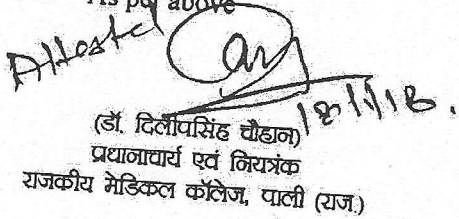 As per above
Attested
18/1/18.
(डॉ. दिलीपसिंह चौहान)
प्रधानाचार्य एवं नियत्रंक
राजकीय मेडिकल कॉलेज, पाली (राज.)